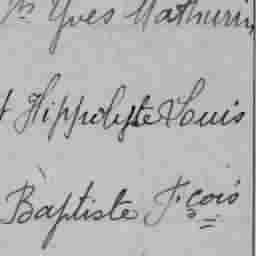 Yves Mathurin
t Hippolyte Louis
Baptiste Fçois